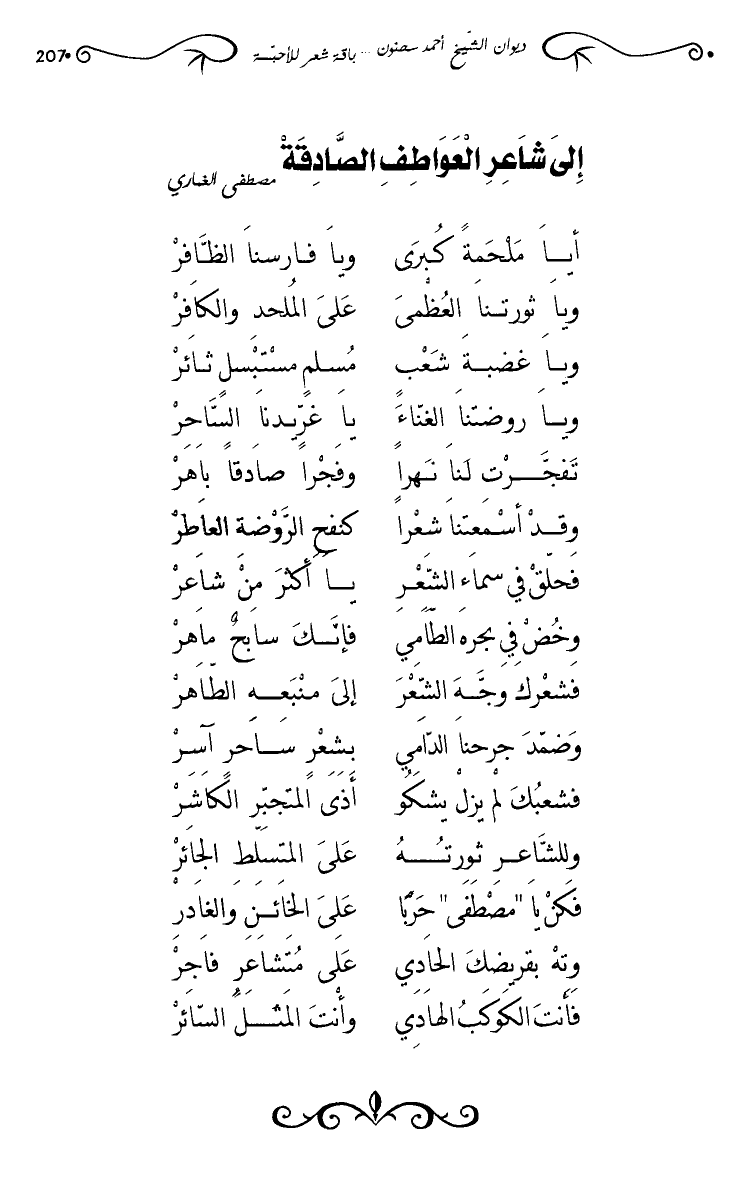 ديوان الشّيخ أحمد سحنون ... باقة شعر للأحبّة 207
إِلىَ شَاعِرِ الْعَوَاطِفِ الصَّادِقَةْ
مصطفى الغماري
أيــاَ مَلْحَمةً كُبرَى وياَ فـارسناَ الظَّافرْ
وياَ ثورتـنا العُظْمىَ عَلىَ المُلحد والكَافرْ
ويـا غضبـةَ شَعْب مُسلم مسْتبْسل ثـائرْ
ويــا روضتنا الغنّاءَ ياَ غرِّيـدناَ السَّاحرْ
تَفجَّــرْت لَناَ نَـهراً وفجْراً صادقاً باَهرْ
وقـدْ أسْمعتنا شعْراً كنفحِ الرَّوْضة العاَطرْ
فحلقْ في سماء الشّعْرِ يــا أكثرَ منْ شاعرْ
وخُضْ في بحره الطّامي فإنَّـكَ سابحٌ ماهرْ
فشعْرك وجَّـهَ الشّعْرَ إلىَ منْبعَـه الطّاهرْ
وَضمّدَ جرحنا الدّامي بشعْرٍ ســاحرٍ آسـرْ
فشعبُكَ لمْ يزلْ يشكُو أذَى المتجبّر الكَاشرْ
وللشَّاعـر ثورتــهُ عَلىَ المتسلّط الجائرْ
فَكنْ ياَ "مصْطفَى" حَرْبًا عَلىَ الخَائـن والغَادرِ
وتهْ بقَريضكَ الحَادي عَلى مُتشاعَرٍ فاَجرْ
فأَنتَ الكَوكبُ الهَادِي وأنتَ المَثـلُ السّائرْ